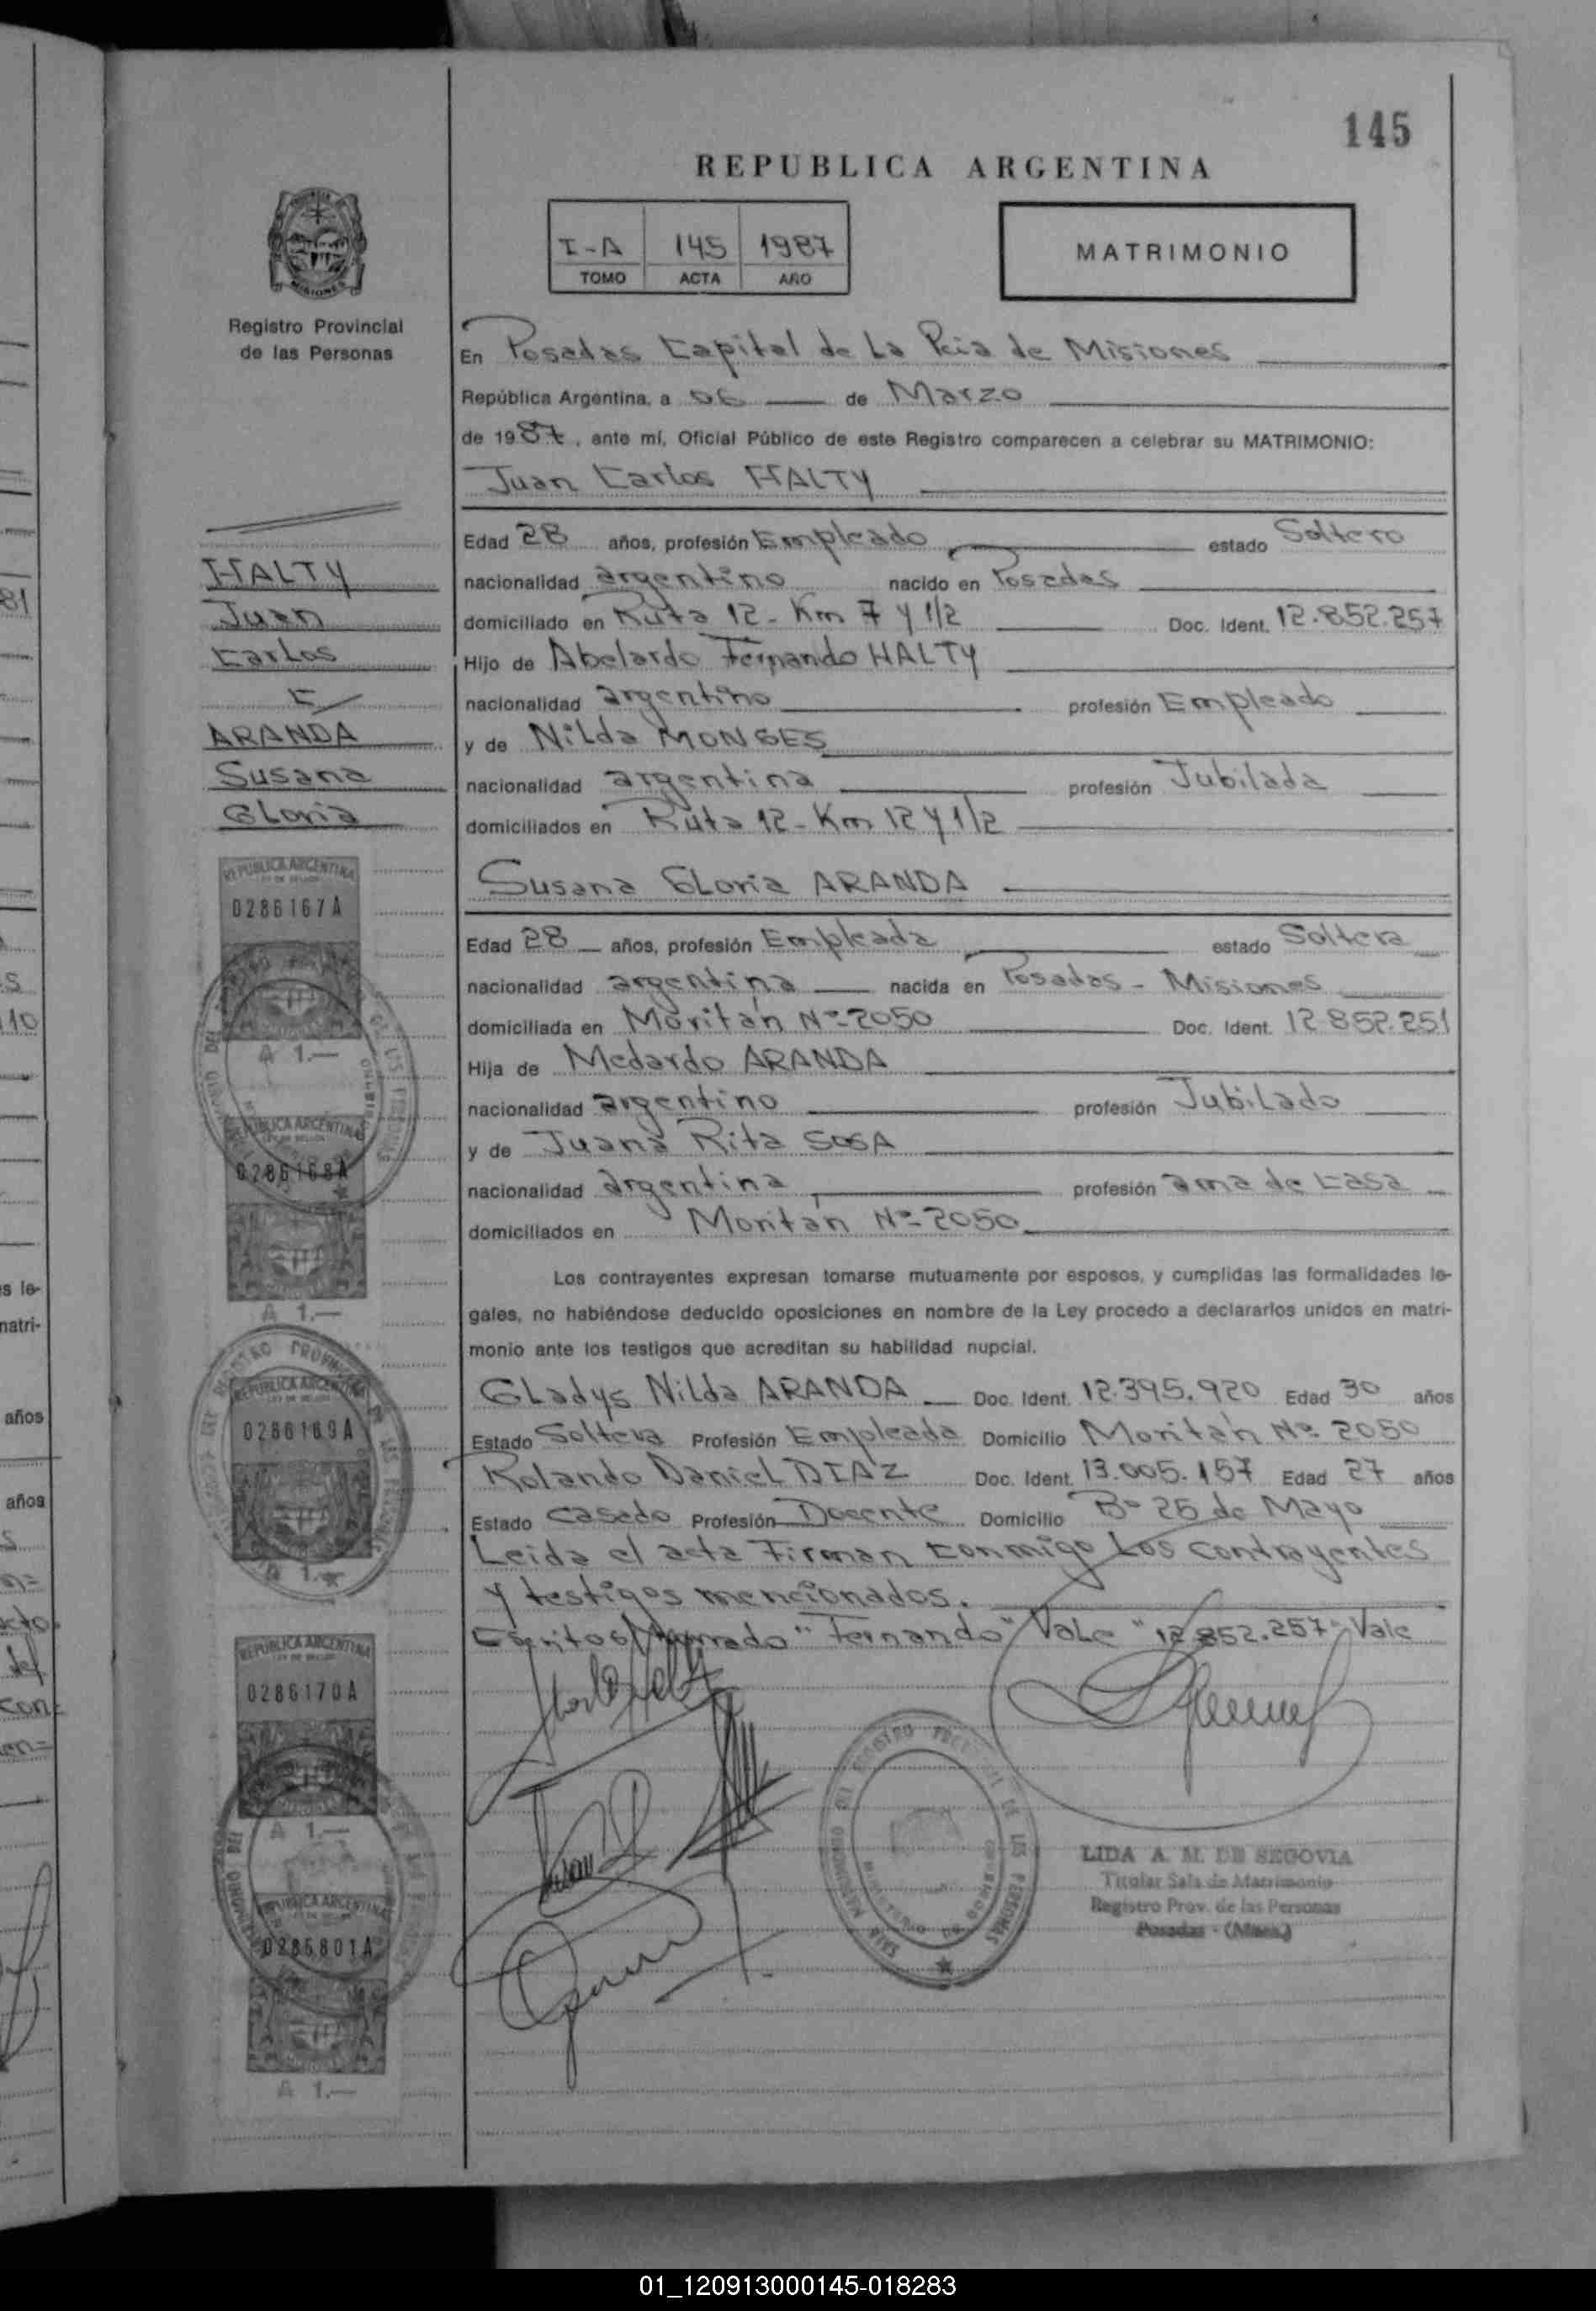 145
REPUBLICA ARGENTINA
I-A 145 1987
TOMO ACTA AÑO
MATRIMONIO
MISIONES
Registro Provincial
de las Personas
En Posadas Capital de La Pcia de Misiones
República Argentina, a 06 de Marzo
de 1987, ante mí, Oficial Público de este Registro comparecen a celebrar su MATRIMONIO:
Juan Carlos HALTY
Edad 28 años, profesión Empleado estado Soltero
nacionalidad argentino nacido en Posadas
domiciliado en Ruta 12 - Km 7 y 1/2 Doc. Ident. 12.852.257
Hijo de Abelardo Fernando HALTY
nacionalidad argentino profesión Empleado
y de Nilda MONGES
nacionalidad argentina profesión Jubilada
domiciliados en Ruta 12 - Km 12 y 1/2
Susana Gloria ARANDA
Edad 28 años, profesión Empleada estado Soltera
nacionalidad argentina nacida en Posadas - Misiones
domiciliada en Moritán Nº 2050 Doc. Ident. 12.852.251
Hija de Medardo ARANDA
nacionalidad argentino profesión Jubilado
y de Juana Rita SOSA
nacionalidad argentina profesión ama de casa
domiciliados en Moritán Nº 2050
Los contrayentes expresan tomarse mutuamente por esposos, y cumplidas las formalidades le-
gales, no habiéndose deducido oposiciones en nombre de la Ley procedo a declararlos unidos en matri-
monio ante los testigos que acreditan su habilidad nupcial.
Gladys Nilda ARANDA Doc. Ident. 12.395.920 Edad 30 años
Estado Soltera Profesión Empleada Domicilio Moritán Nº 2050
Rolando Daniel DIAZ Doc. Ident. 13.005.157 Edad 27 años
Estado casado Profesión Docente Domicilio Bº 25 de Mayo
Leida el acta Firman conmigo Los contrayentes
y testigos mencionados.
"Fernando" Vale "12.852.257" Vale
LIDA A. M. DE SEGOVIA
Titular Sala de Matrimonio
Registro Prov. de las Personas
Posadas - (Mnes.)
HALTY
Juan
Carlos
c/
ARANDA
Susana
Gloria
REPUBLICA ARGENTINA
0286167A
A 1.—
REPUBLICA ARGENTINA
0286168A
A 1.—
REPUBLICA ARGENTINA
0286169A
A 1.—
REPUBLICA ARGENTINA
0286170A
A 1.—
REPUBLICA ARGENTINA
0286801A
A 1.—
81
110
s le-
matri-
años
años
01_120913000145-018283